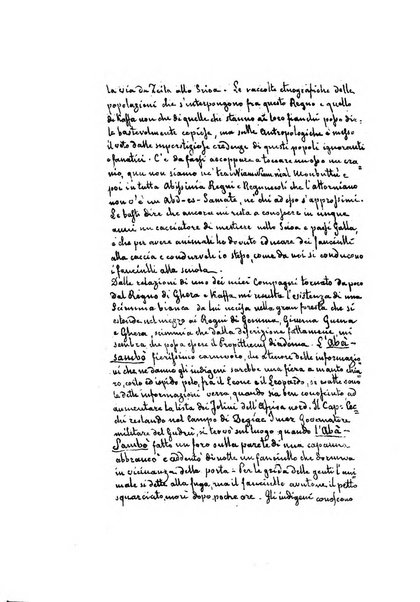 la via da Zeila allo Scioa. Le raccolte etnografiche delle
popolazioni che s'interpongono fra questo Regno e quello
di Kaffa non che di quelle che stanno ai loro fianchi posso dir-
le bastevolmente copiose, ma sulle Antropologiche è messo
il voto dalle superstiziose credenze di questi popoli ignoranti
e fanatici. C'è da farsi accoppare a toccare un osso un cra-
nio, que non siamo ne' tra Niamniam nei Monbuttù e
poi in tutta Abissinia Regni e Regnucoli che l'attorniano
non v'è un che ad esso s'approssimi.
Le basti dire che ancora mi resta a conoscere in cinque
anni un cacciatore di mestiere nello Scioa e paesi galla,
e che per avere animali ho dovuto educare dei fanciulli
alla caccia e condurveli io stesso come da noi si conducono
i fanciulli alla scuola.
Dalle relazioni di uno dei miei Compagni tornato da poco
dal Regno di Ghera e Kaffa mi risulta l'esistenza di una
Scimmia bianca da lui uccisa nella gran foresta che si
estende nel mezzo ai Regni di Gomma, Guma
e Ghera, scimmia che dalla descrizione fattamene, mi
sembra che possa essere il L'Abà-
sambò fierissimo carnivoro, che a tenore delle informazio-
ni che ne danno gli indigeni sarebbe una fiera a manto chia-
ro, corto ed ispido pelo, fra il Leone e il Leopardo, se
delle informazioni verrà quando sia bene conosciuto ad
aumentare la lista dei felini dell'Africa nord. Il Cap: Ce-
chi restando nel campo di Governatore
militare del si trovò nel luogo quando l'Abà-
Sambò fatto un foro sulla parete di una capanna
abbrancò e addentò di notte un fanciullo che dormiva
in vicinanza della porta. Per le grida delle genti l'ani-
male si dette alla fuga, ma il fanciullo avutone il petto
squarciato, morì dopo poche ore. Gli indigeni conoscono